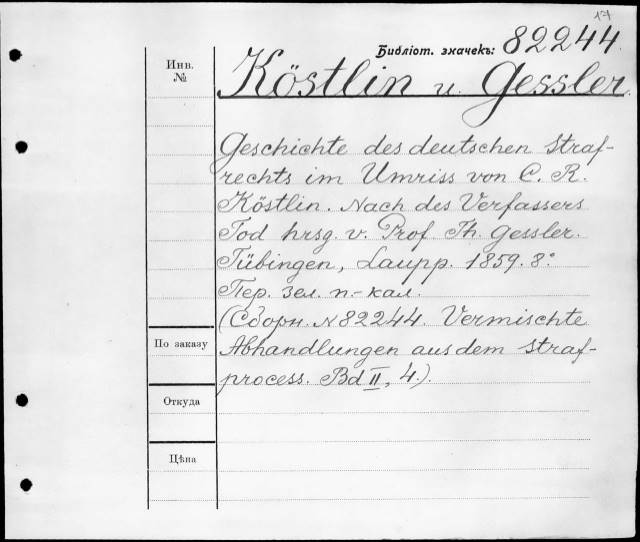 17
Библіот. значекъ: 82244.
Инв.
№
Köstlin u. Gessler.
Geschichte des deutschen Straf-
rechts im Umriss von C. R.
Köstlin. Nach des Verfassers
Tod hrsg. v. Prof. Th. Gessler.
Tübingen, Laupp. 1859. 8°
Пер. зел. п.-кал.
(Сборн. № 82244. Vermischte
По заказу
Abhandlungen aus dem Straf-
process. Bd II, 4.).
Откуда
Цѣна